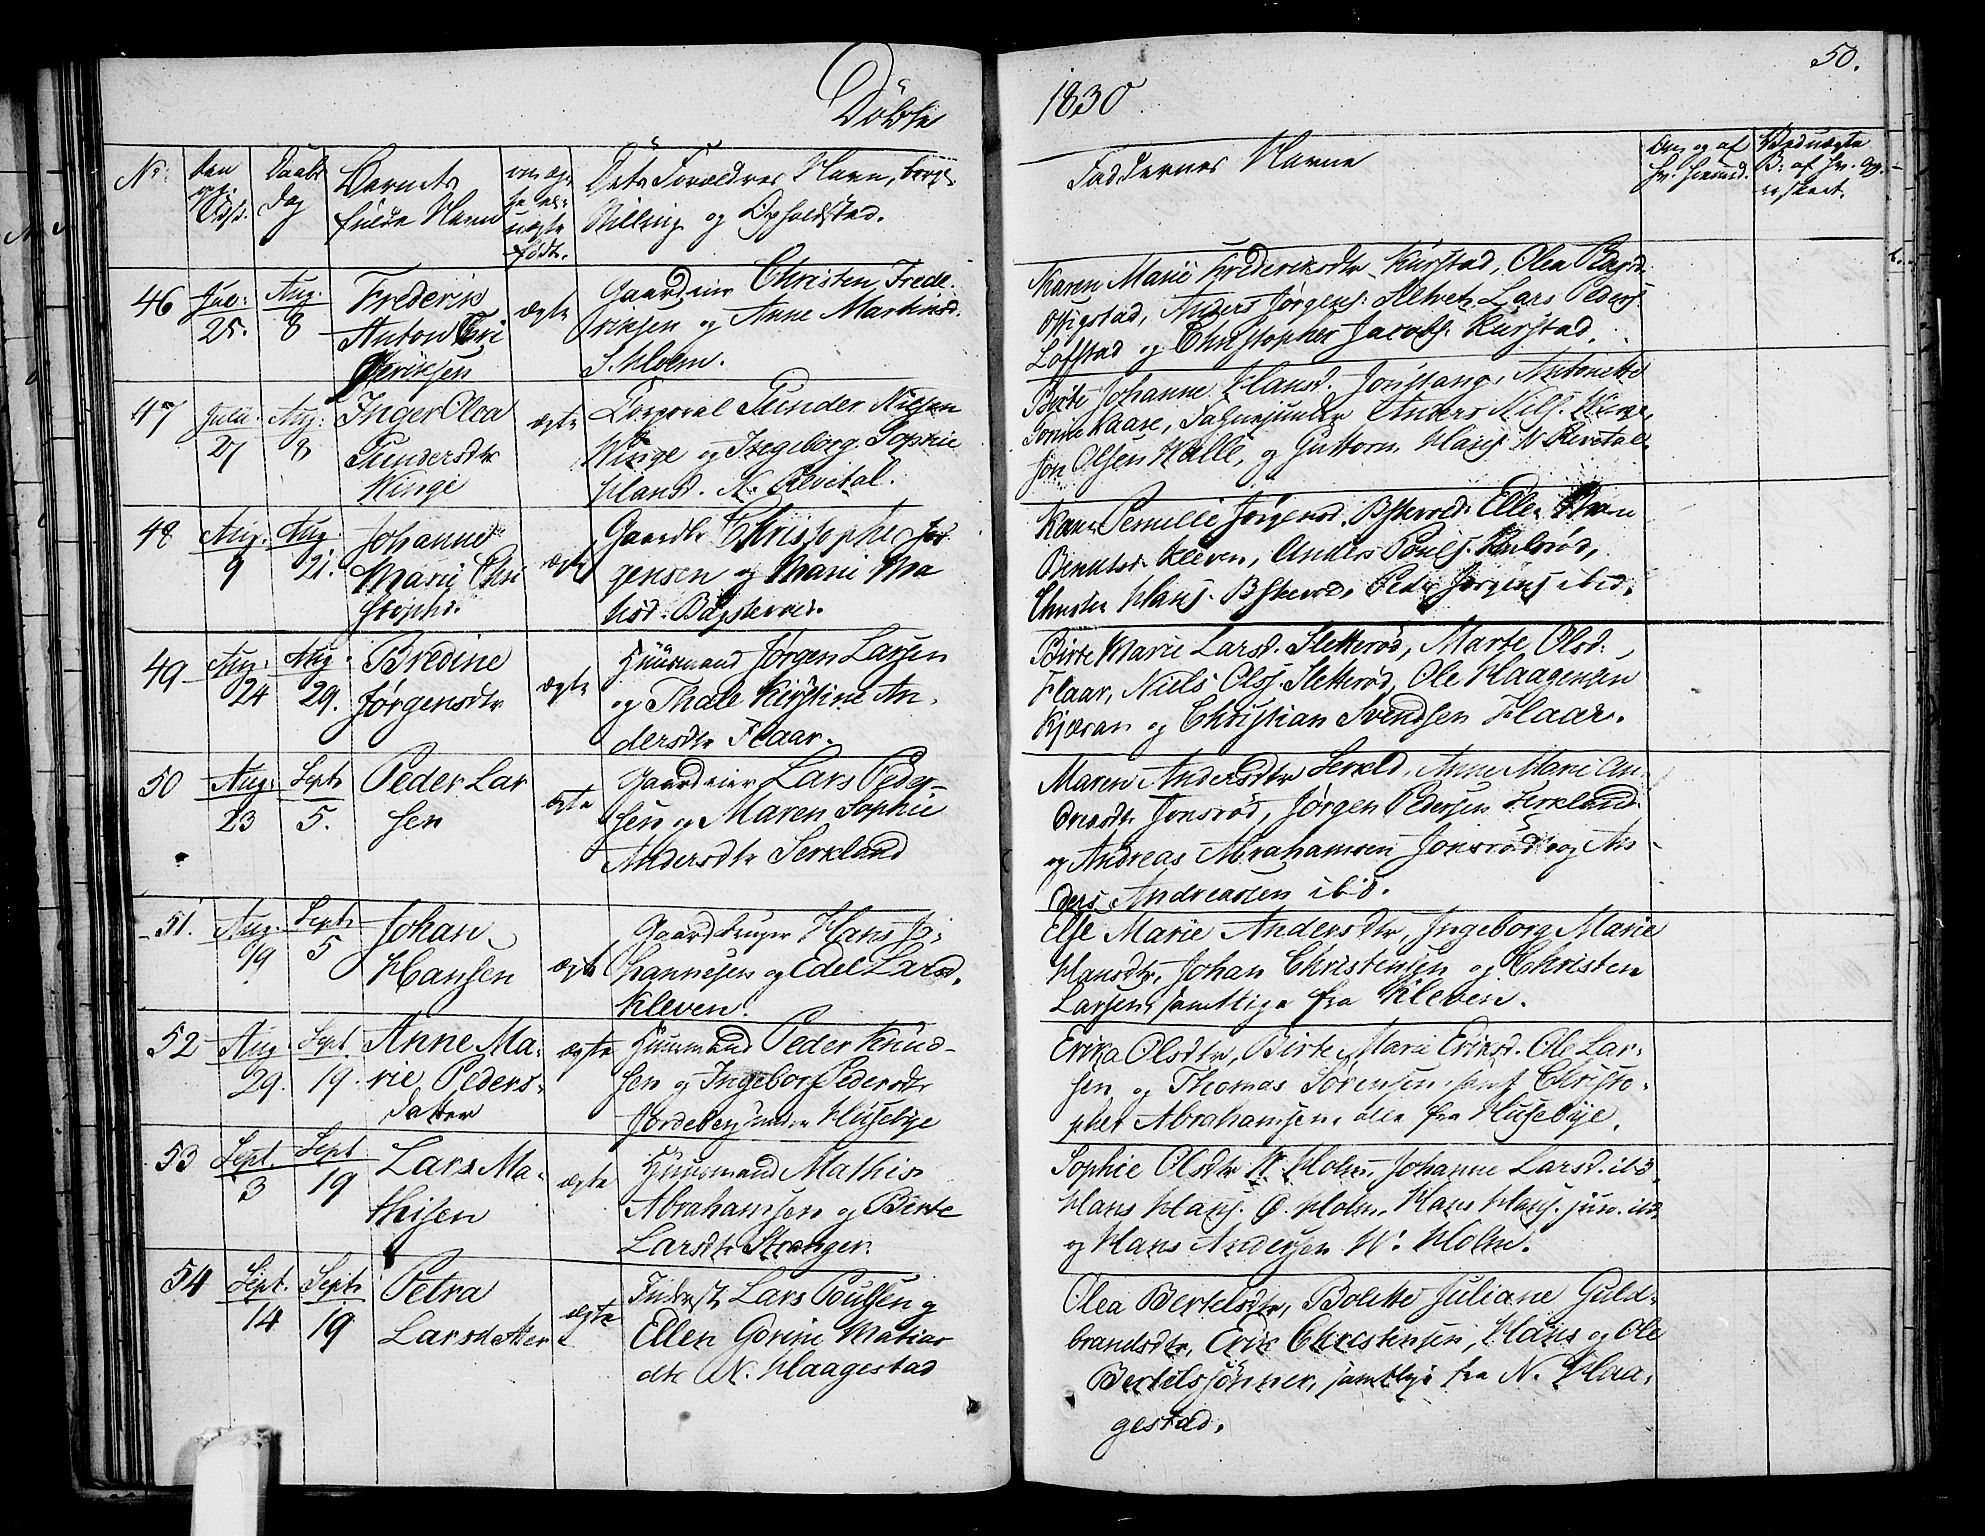 Döbte
1830
50.
No
Daabs
Dag
Barnets
fulde Navn
Dets Forældres Navn, borgl.
Stilling og Opholdsted.
Faddernes Navne
46 Jul: 25. Aug. 8
Frederik
Anton
ægte
Gaardeier Christen Frede-
riksen og Anne Martinsd.
S. Holm.
Karen Marie Frederiksdtr Kurstad, Olea
Anders Jørgens. Lars Peders.
Løfstad og Christopher Jacobs. Kurstad.
47 Julii 27 Aug. 8
Inger Olea
Gundersdtr
Winge
ægte
Corporal Gunder Nilsen
Winge og Ingeborg Sophie
Hansd. N. Revetal.
Birte Johanne Hansd. Antonette
Anders Nils. Winge,
Olsen og Guttorm Hans. N. Revetal.
48 Aug. 9 Aug. 21.
Johanne
Marie Chri
stophd.
ægte
Gaardbr Christopher Jör
gensen og Marie Ma
Karen Pernille Jørgensd. Ellen
Kleven, Anders Pouls.
Christen Hans. Peder Jørgens ibid.
49 Aug. 24 Aug. 29.
Bredine
Jørgensdtr
ægte
Huusmand Jørgen Larsen
og Thale Kirstine An-
dersdtr Flaar.
Birte Marie Larsd. Sletterød, Marte Olsd.
Flaar, Niels Ols. Sletterød, Ole Haagensen
Kjæran og Christian Svendsen Flaar.
50 Aug. 23 Sept. 5.
Peder Lar
sen
ægte
Gaardeier Lars Peder-
sen og Maren Sophie
Andersdtr Serkland
Maren Andersdtr Serkld, Anne Marie An-
dreasdtr Jonsrød, Jørgen Pedersen Serkland
og Andreas Abrahamsen Jonsrød og An-
ders Andreassen ibid.
51. Aug. 19 Sept. 5
Johan
Hansen
ægte
Gaardbruger Hans Jo-
hannesen og Edel Larsd.
Kleven.
Else Marie Andersdtr, Ingeborg Marie
Hansdtr, Johan Christensen og Christen
Larsen, samtlige fra Kleven.
52 Aug. 29. Sept. 19.
Anne Ma-
rie Peders-
datter
ægte
Huusmand Peder Knud-
sen og Ingeborg Pedersdtr
Husebye
Erika Olsdtr, Birte Marie Eriksd. Ole Lar-
sen og Thomas Sørensen samt Christo-
pher Abrahamsen, alle fra Husebye.
53 Sept. 3 Sept 19
Lars Ma-
thisen
ægte
Huusmand Mathis
Abrahamsen og Birte
Larsdtr Stranger.
Sophie Olsdtr N. Holm, Johanne Larsd. ibd,
Hans Hans. Ø. Holm, Hans Hans. jun. ibd,
og Hans Andersen W. Holm.
54 Sept. 14 Sept. 19
Petra
Larsdatter
ægte
Inderst Lars Poulsen og
Ellen Gorine Matias
dtr N. Haagestad
Olea Bertelsdtr, Bolette Juliane Guld-
brandsdtr, Erik Christensen, Hans og Ole
Bertelssønner, samtlige fra N. Haa-
gestad.